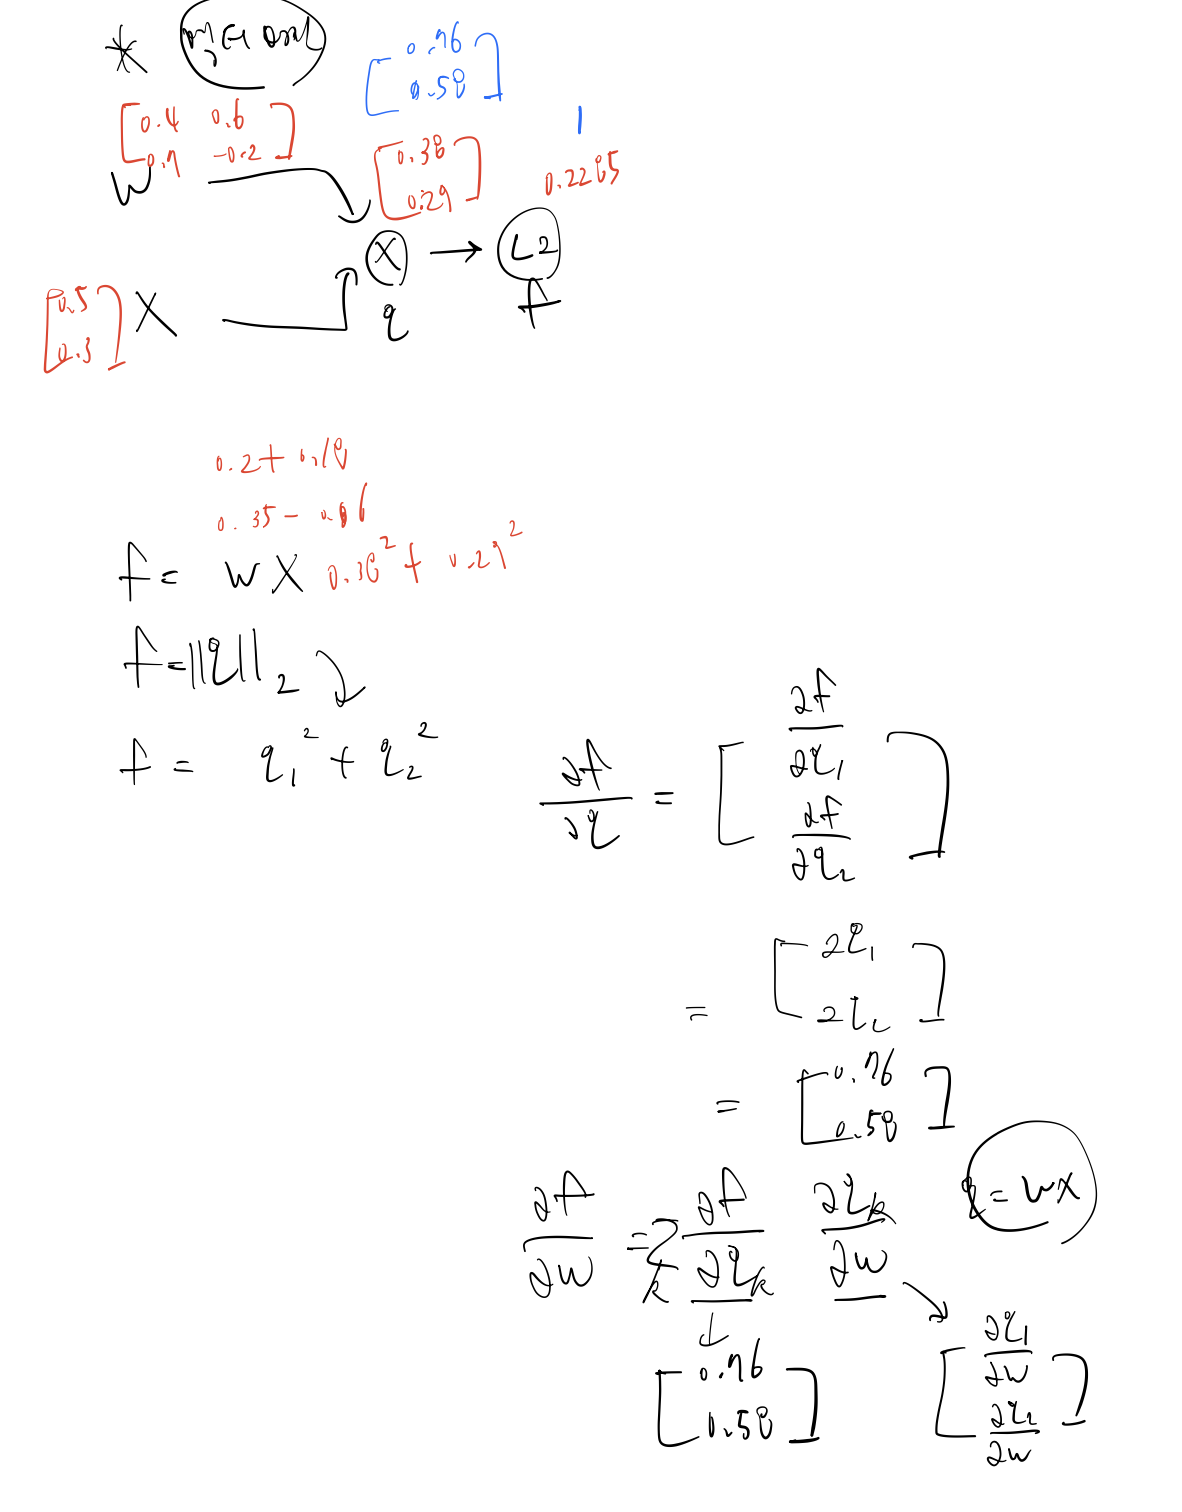 *
[0.76
0.58]
[0.4 0.6
0.7 -0.2]
W
[0.38
0.29]
1
0.2285
X → L2
q f
[0.5
0.3] X
0.2 + 0.18
0.35 - 0.06
f = WX 0.38² + 0.29²
f = ||q||₂
f = q₁² + q₂²
∂f/∂q = [∂f/∂q₁
∂f/∂q₂]
= [2q₁
2q₂]
= [0.76
0.58]
q = WX
∂f/∂W = Σₖ ∂f/∂qₖ ∂qₖ/∂W
↓
[0.76
0.58]
[∂q₁/∂W
∂q₂/∂W]